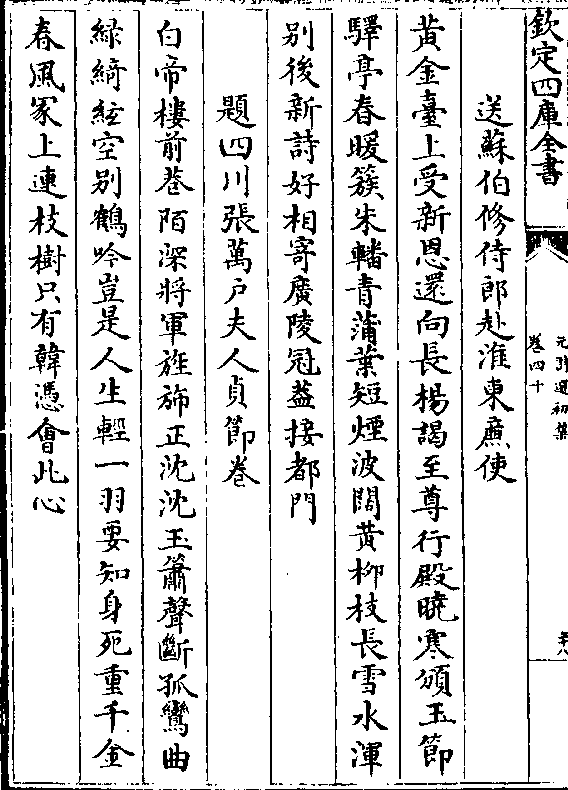 欽定四庫全書
元詩選初集
卷四十
送蘇伯修侍郎赴淮東亷使
黃金臺上受新恩還向長楊謁至尊行殿曉寒頒玉節
驛亭春暖簇朱轓青蒲葉短煙波闊黃柳枝長雪水渾
别後新詩好相寄廣陵冠葢接都門
題四川張萬戶夫人貞節卷
白帝樓前巷陌深將軍旌斾正沈沈玉簫聲斷孤鸞曲
緑綺絃空别鶴吟豈是人生輕一羽要知身死重千金
春風冢上連枝樹只有韓憑會此心